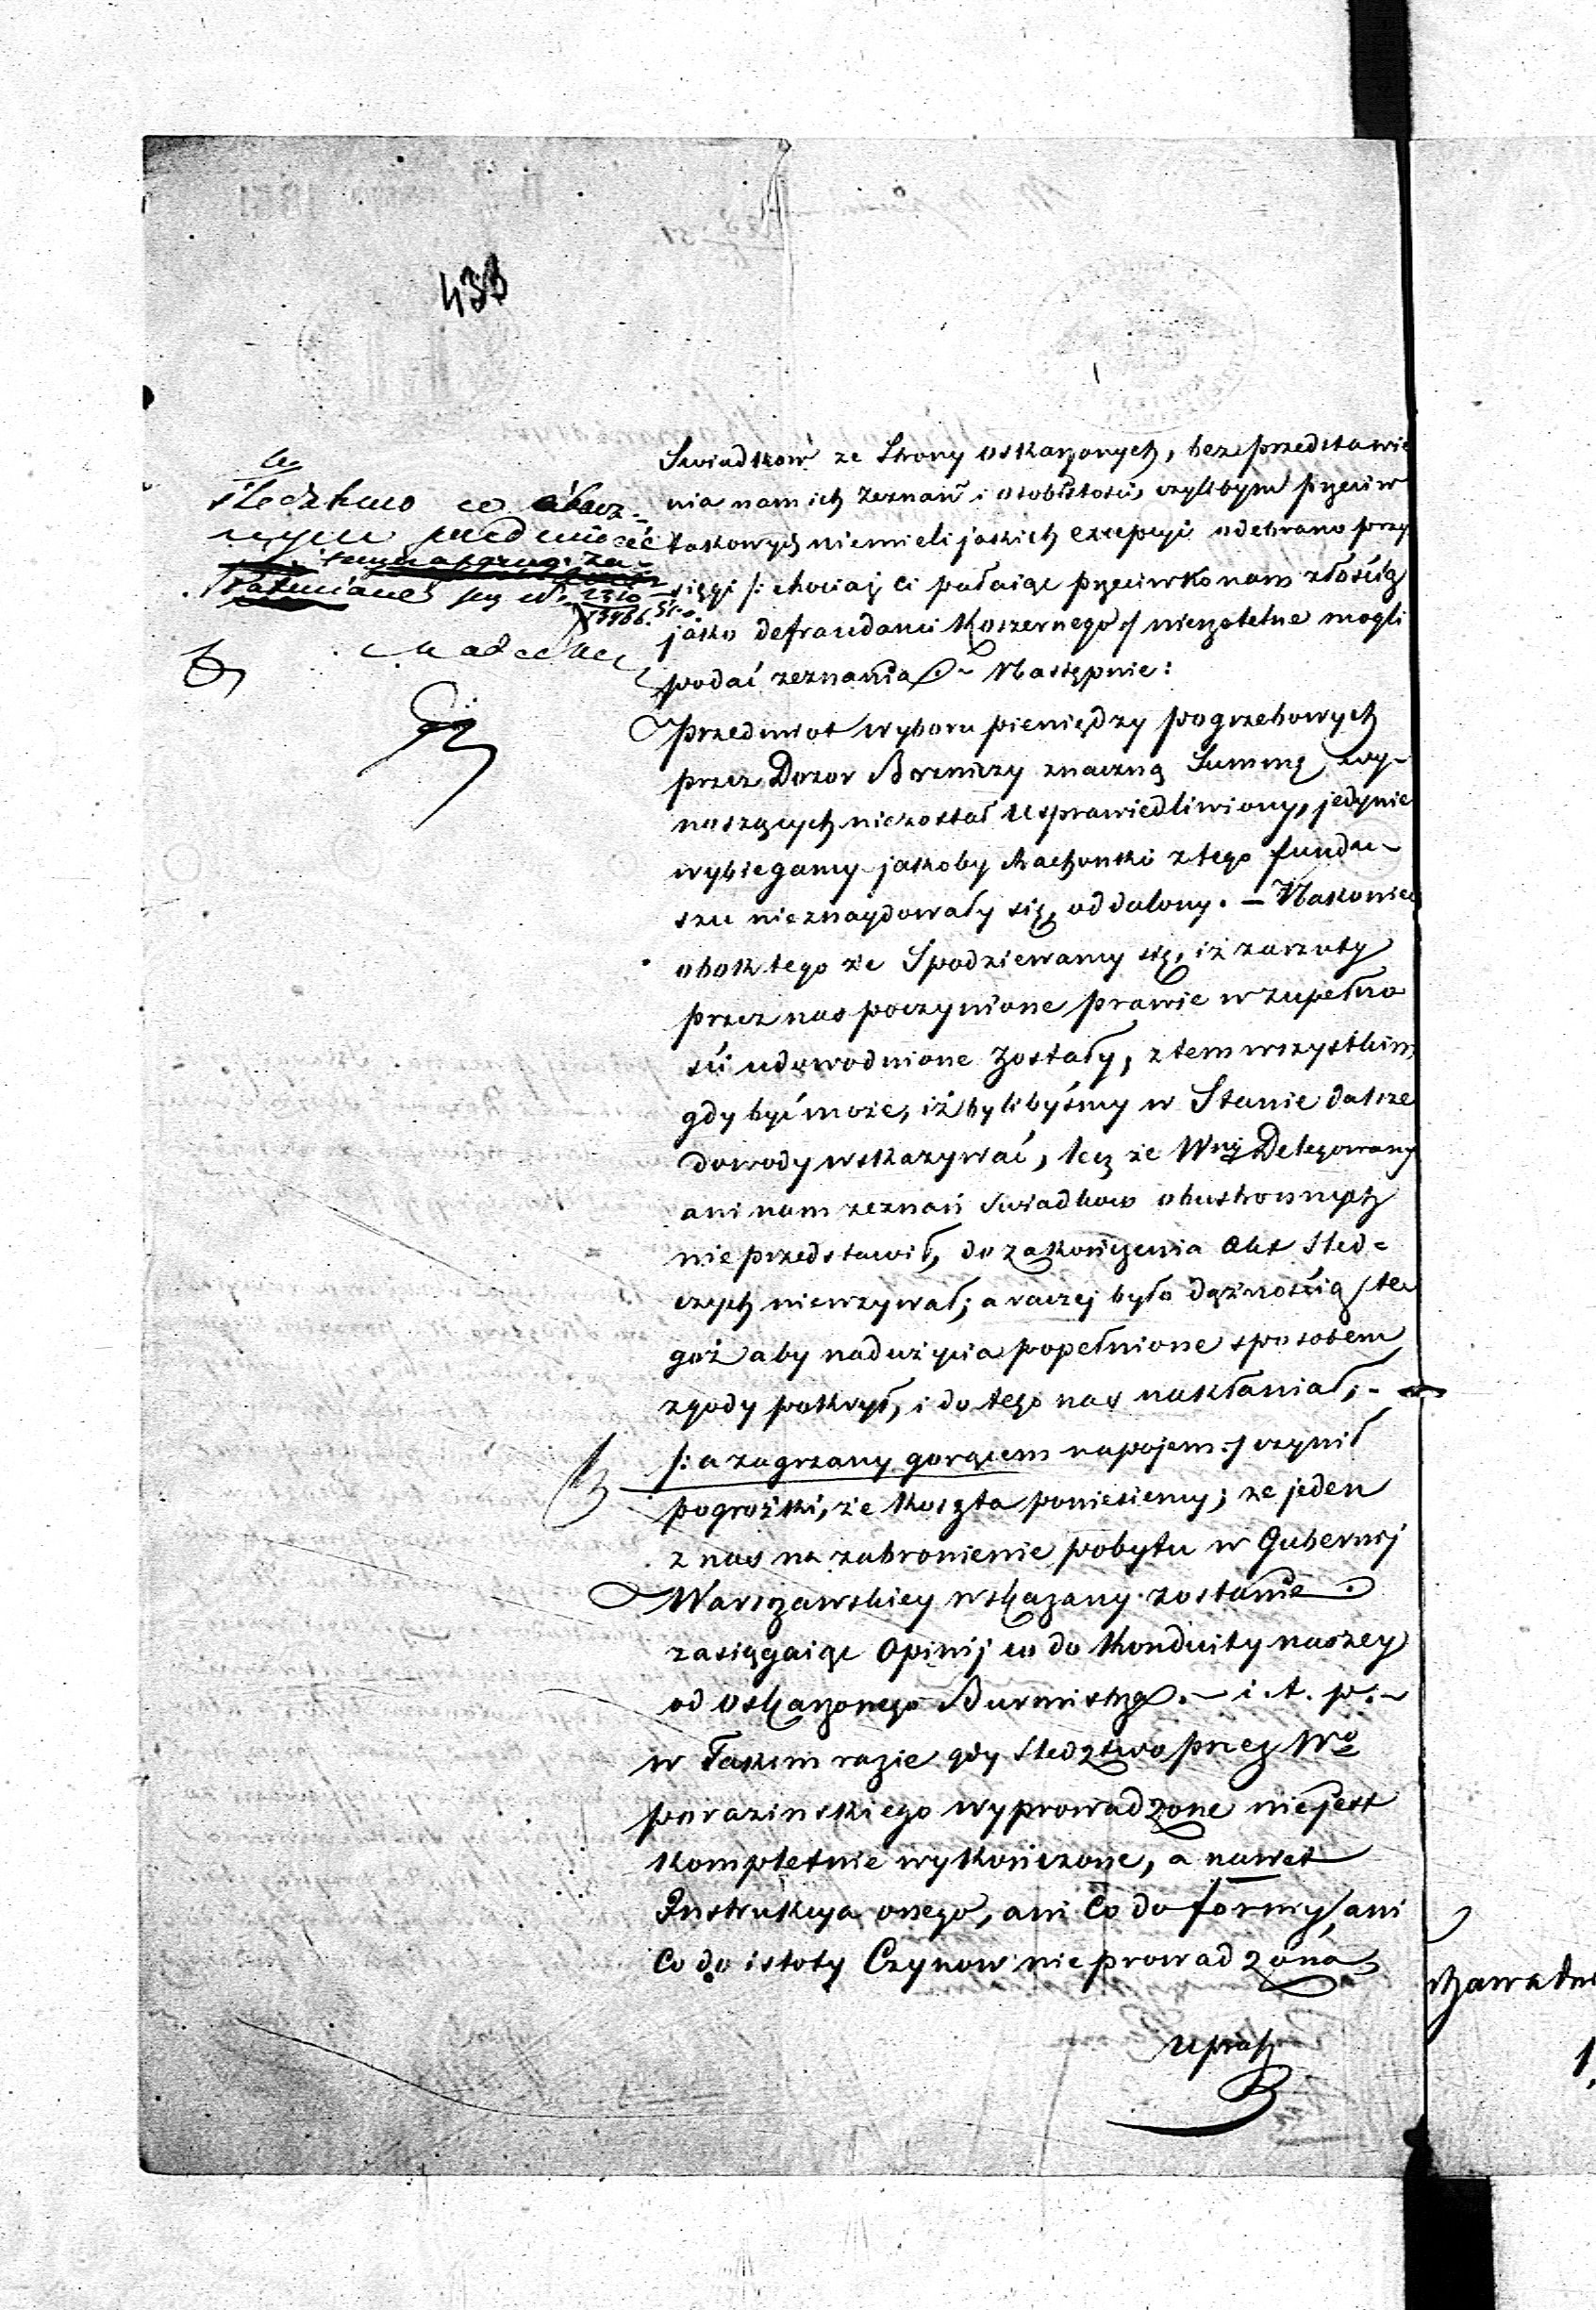 433
Swiadkow ze Strony oskarzonych, bez przedstawie
nia nam ich zeznań i osobistości, czylibyśm przeciw
takowych niemieli jakich excepcyi odebrano przy
sięgi /: chociaż ci pałaiąc przeciwko nam złością
jako defraudanci Koszernego :/ nierzetelne mogli
podać zeznania. – Następnie:
Przedmiot wyboru pieniędzy pogrzebowych
przez Dozor Bozniczy znaczną Summę wy-
noszących niezostał usprawiedliwiony, jedynie
wybiegamy jakoby Rachunki z tego fundu-
szu nieznaydowały się, oddalony. – Nakoniec
obok tego że Spodziewamy się, iż zarzuty
przez nas poczynione prawie w zupełno
ści udowodnione zostały, z tem wszystkim
gdy być może, iż bylibyśmy w Stanie dalsze
dowody wskazywać, lecz że Wny Delegowany
ani nam zeznań Swiadkow obustronnych
nie przedstawił, do zakończenia Akt Sled-
czych niewzywał; a raczej było dążnością te
goż aby nadużycia popełnione sposobem
zgody pokrył, i do tego nas nakłaniał, -
/: a zagrzany gorącem napojem :/ czynił
pogrożki, że koszta poniesiemy; że jeden
z nas na zabronienie pobytu w Gubernij
Warszawskiey wskazany zostanie
zasięgaiąc Opinij co do Konduity naszey
od oskarzonego Burmistrza. – i. t. p. –
w Takim razie gdy Sledztwo przez Wo
Parazinskiego wyprowadzone niejest
kompletnie wykończone, a nawet
Instrukcya onego, ani Co do formy, ani
Co do istoty Czynow nie prowadzona
upra
śledztwo co
1,